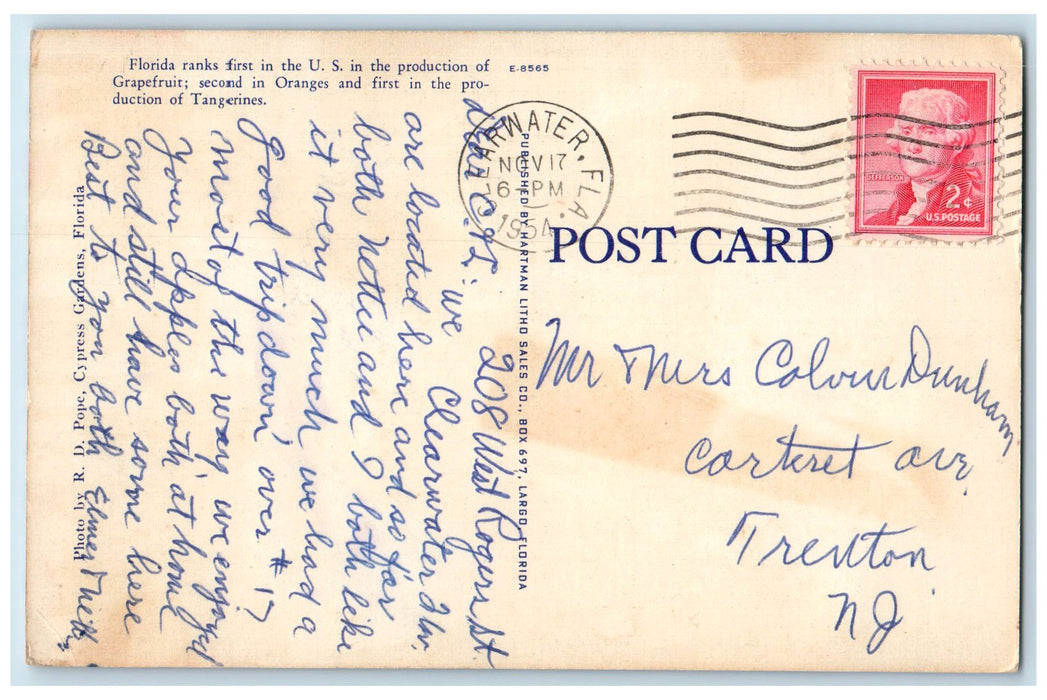 Florida ranks first in the U. S. in the production of
Grapefruit; second in Oranges and first in the pro-
duction of Tangerines.
E-8565
CLEARWATER, FLA.
NOV 17
6-PM
1954
JEFFERSON
2¢
U.S. POSTAGE
POST CARD
PUBLISHED BY HARTMAN LITHO SALES CO., BOX 697, LARGO, FLORIDA
Photo by R. D. Pope, Cypress Gardens, Florida
208 West Rogers St.
Clearwater
dear we
are located here and so far
both Nettie and I both like
it very much we had a
good trip down over # 17
most of the way we enjoyed
your apples both at home
and still have some here
Best to you both Elmer
Mr & Mrs Dunham
Carteret ave.
Trenton
NJ